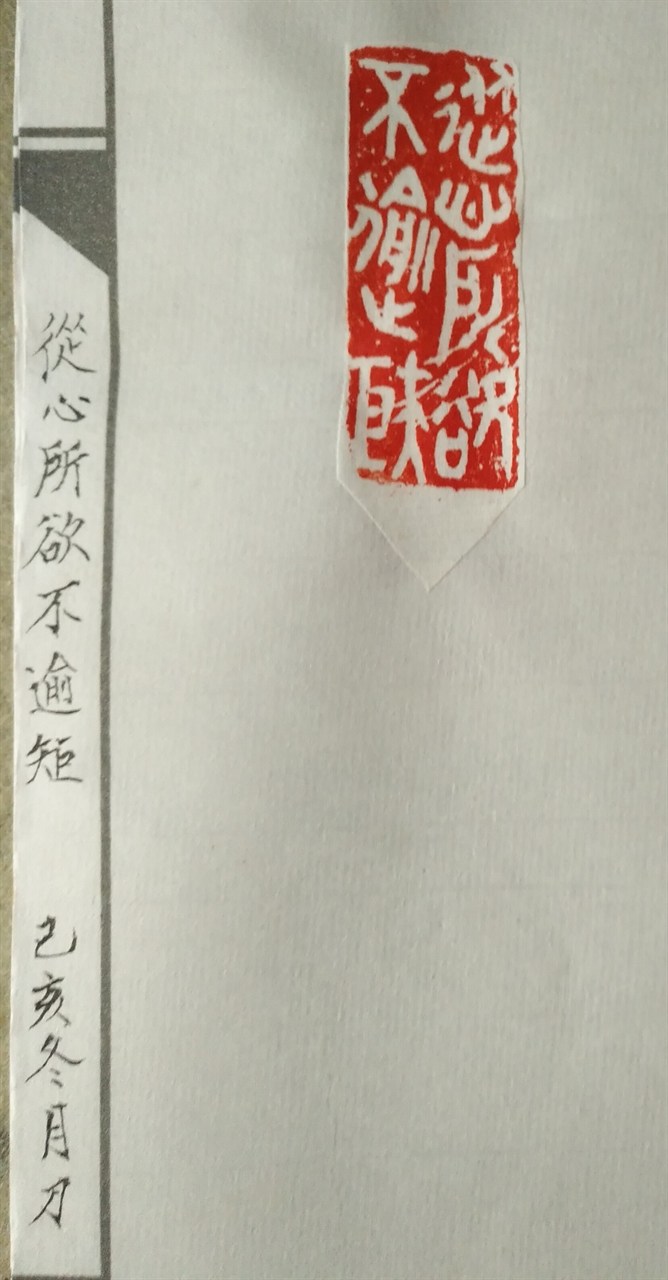 從心所欲
不逾矩
從心所欲不逾矩
己亥冬月刀